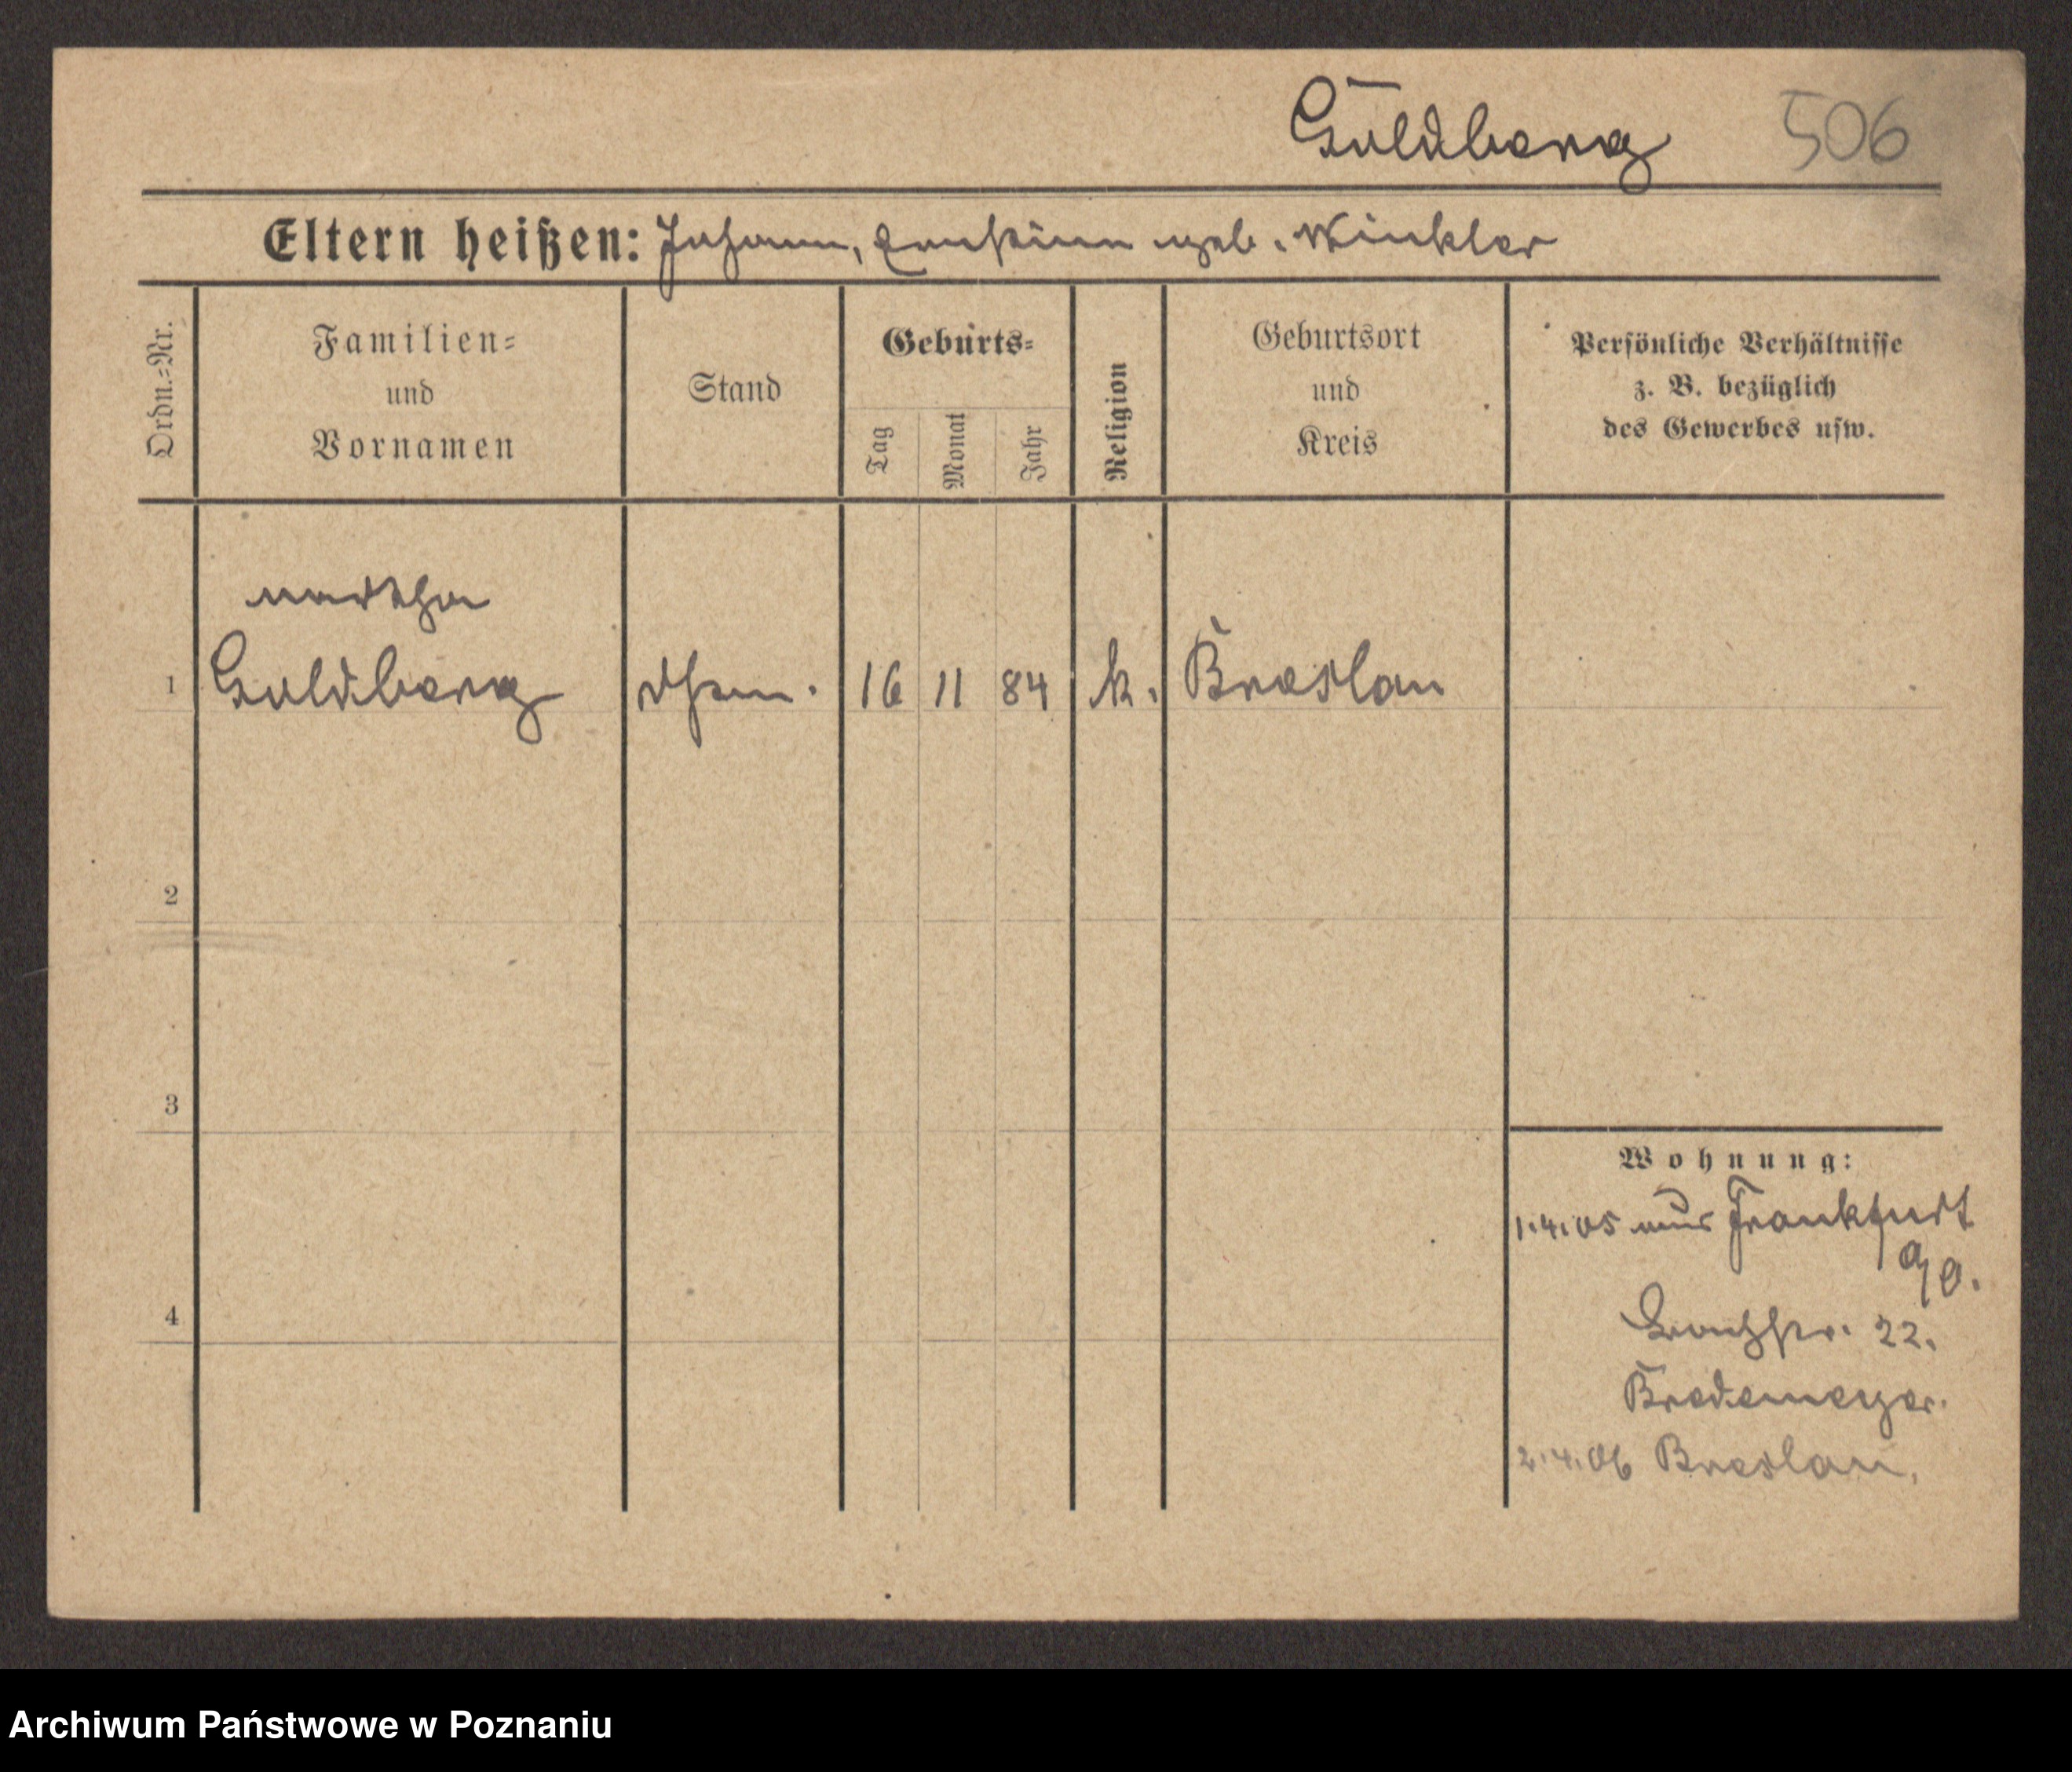 Goldberg 506
Eltern heißen: Johann, Ernstine geb. Winkler
Ordn.-Nr.
Familien-
und
Vornamen
Stand
Geburts-
Tag
Monat
Jahr
Religion
Geburtsort
und
Kreis
Persönliche Verhältnisse
z. B. bezüglich
des Gewerbes usw.
Martha
1 Goldberg 16 11 84 k. Breslau
2
3
4
Wohnung:
1.4.05 aus Frankfurt
a/O.
22.
Bredemeyer.
2.4.06 Breslau.
Archiwum Państwowe w Poznaniu